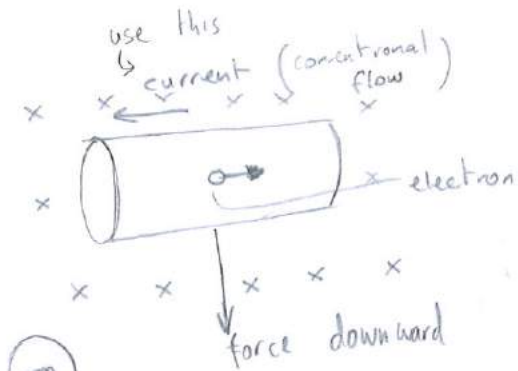 use this
current (conventional
flow)
electron
force downward